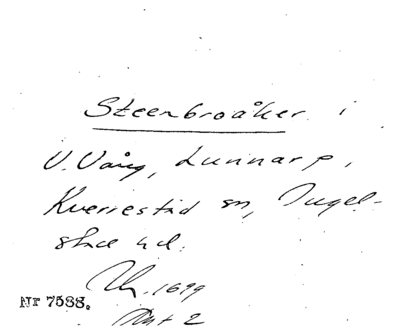 Steenbroåker i
V. Vång, Lunnarp,
Kverrestad sn, Ingel-
stad hd.
1699
Nr 7588.